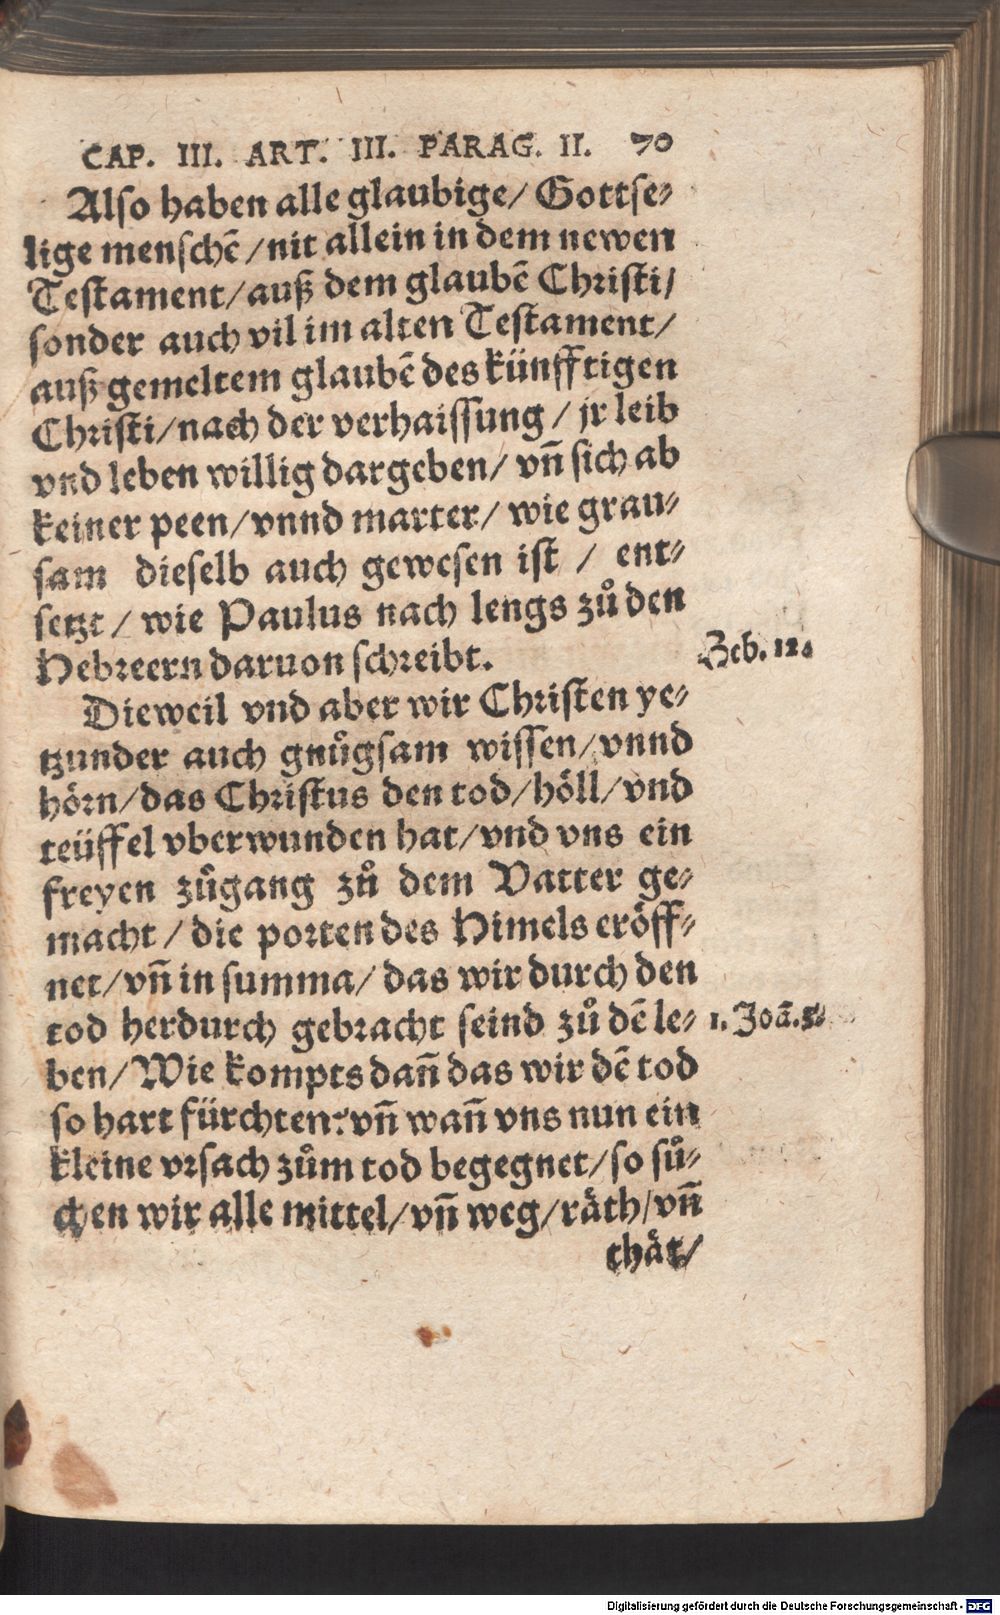 CAP. III. ART. III. PARAG. II. 70
Also haben alle glaubige/ Gottse⸗
lige menschē/nit allein in dem newen
Testament/auß dem glaubē Christi/
sonder auch vil im alten Testament/
auß gemeltem glaubē des künfftigen
Christi/nach der verhaissung / jr leib
vnd leben willig dargeben/ vñ sich ab
keiner peen/vnnd marter/ wie grau⸗
sam dieselb auch gewesen ist / ent⸗
setzt / wie Paulus nach lengs zů den
Hebreern daruon schreibt.
Heb. 12.
Dieweil vnd aber wir Christen ye⸗
tzunder auch gnůgsam wissen/vnnd
hörn/das Christus den tod/höll/vnd
teüffel vberwunden hat/vnd vns ein
freyen zůgang zů dem Vatter ge⸗
macht / die porten des Himels eröff⸗
net/vñ in summa/ das wir durch den
tod herdurch gebracht seind zů dē le⸗
1. Joā. 5.
ben/Wie kompts dañ das wir dē tod
so hart fürchten: vñ wañ vns nun ein
kleine vrsach zům tod begegnet/so sů⸗
chen wir alle mittel/vñ weg/räth/vñ
thät/
Digitalisierung gefördert durch die Deutsche Forschungsgemeinschaft - DFG